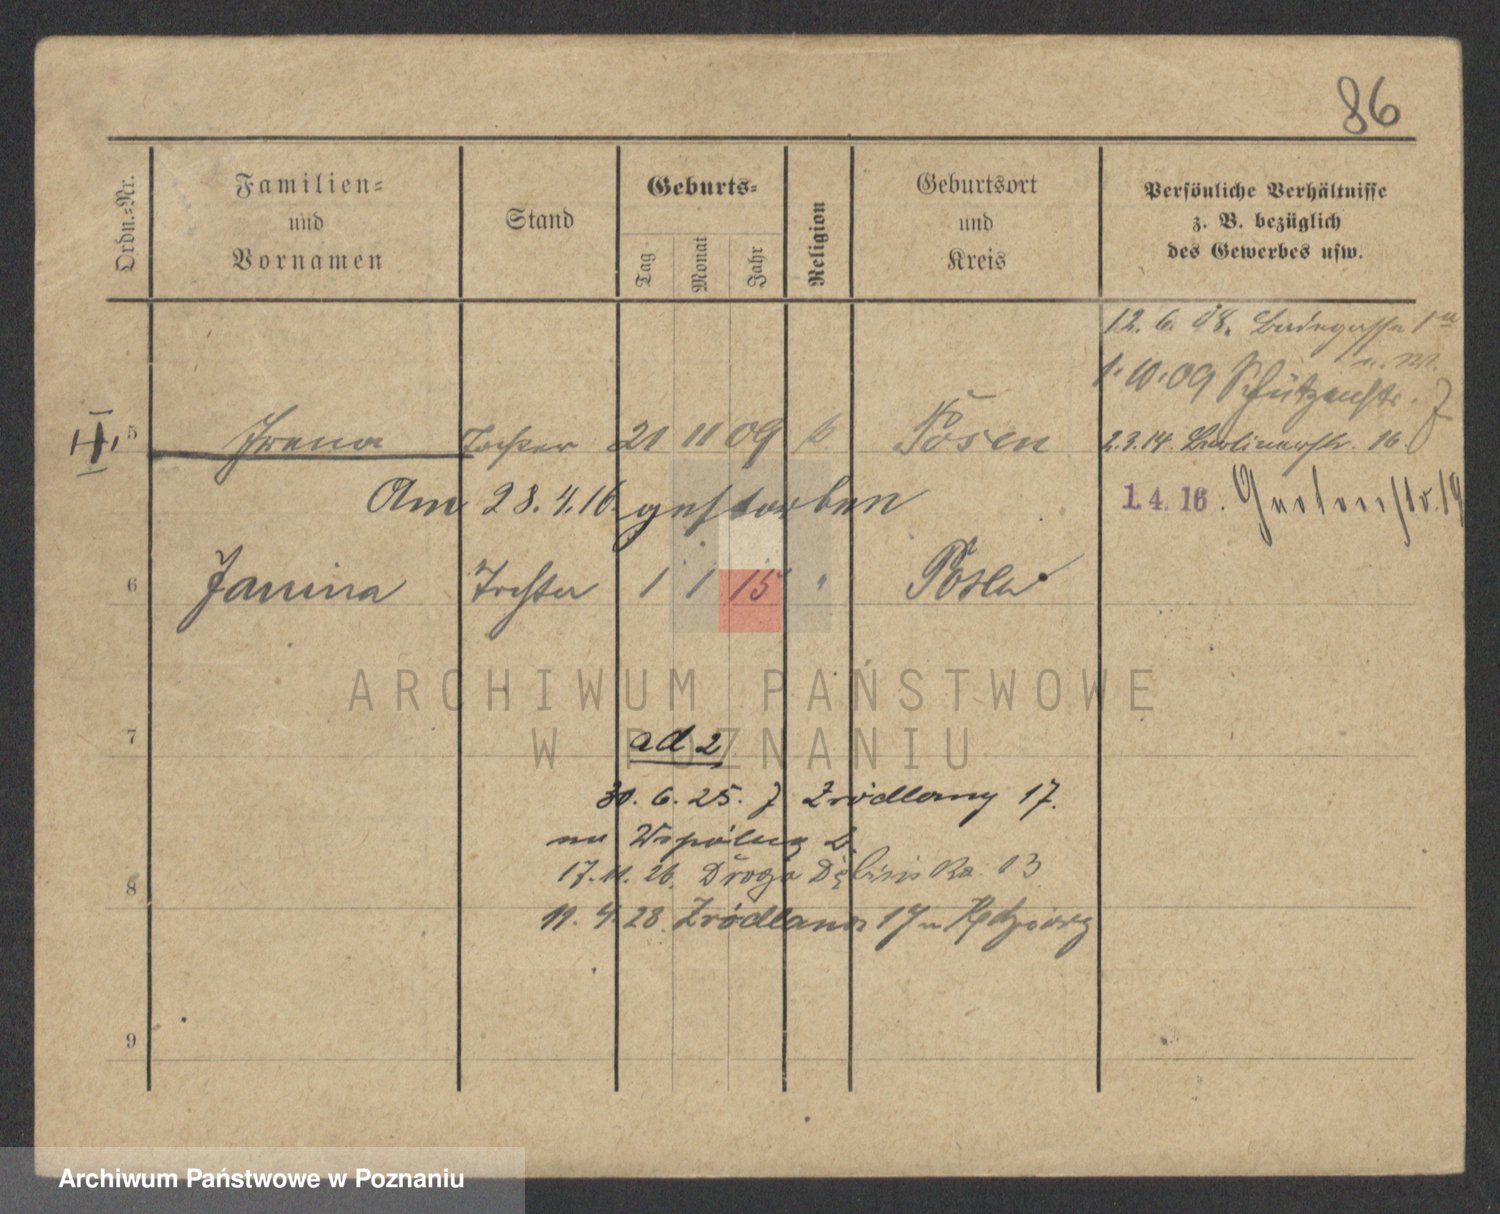 86
Ordn.-Nr.
Familien-
und
Vornamen
Stand
Geburts-
Tag
Monat
Jahr
Religion
Geburtsort
und
Kreis
Persönliche Verhältnisse
z. B. bezüglich
des Gewerbes usw.
12. 6. 08.
1.10.09 Schützenstr.
5 Irena Tochter 21 11 09 k. Posen 2.3.14. Berlinerstr. 16.
Am 28.4.16. gestorben 1.4.16.
6 Janina Tochter 1 1 15 " Posen
ARCHIWUM PAŃSTWOWE
W POZNANIU
7 ad 2
30. 6. 25. Zródlany 17.
8 17.11.26. Droga Dębińska 13
19. 4. 28. Zródlana 17
9
Archiwum Państwowe w Poznaniu